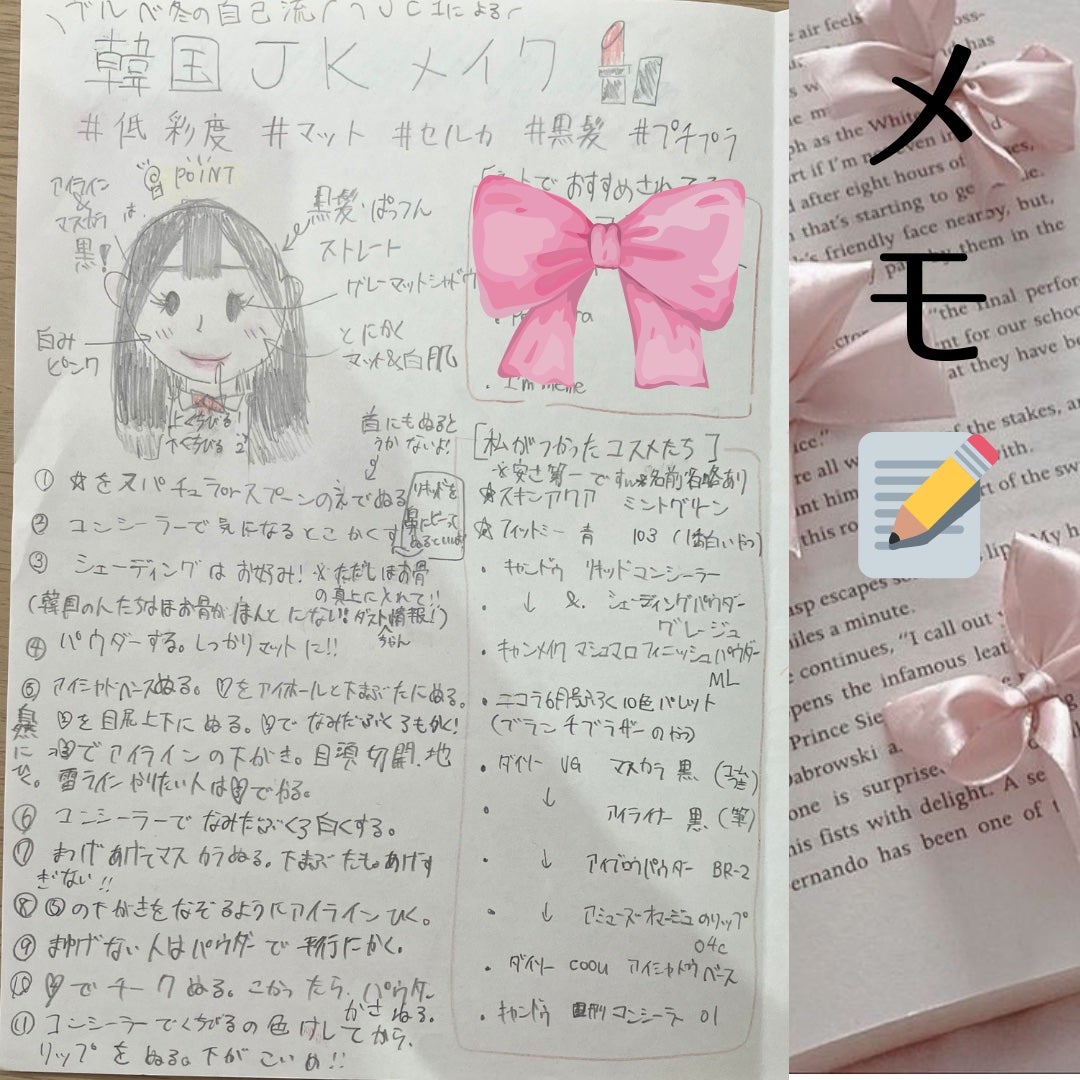 ブルべ冬の自己流(JC1による)
韓国JKメイク
#低彩度 #マット #セルカ #黒髪 #プチプラ
POINT
アイライン
&
マスカラ
は、
黒!
黒髪・ぱっつん
ストレート
グレーマットシャドウ
とにかく
マット&白肌
白み
ピンク
上くちびる1
下くちびる2
首にもぬると
うかないよ!
ネットでおすすめされてる
・I'm meme
①☆をスパチュラorスプーンのえでぬる
リキッドを
鼻にピーって
ぬるといいよ
②コンシーラーで気になるとこかくす
③シェーディングはお好み!※ただしほお骨
の真上にいれて!!
(韓国の人たちはほお骨がほんとにない!ダスト情報!)
ちゃん
④パウダーする。しっかりマットに!!
⑤アイシャドベースぬる。♡をアイホールと下まぶたにぬる。
を目尻上下にぬる。でなみだぶくろもかく!
でアイラインの下がき。目頭切開、地
雷ラインやりたい人はでやる。
自然にひく。
⑥コンシーラーでなみだぶくろ白くする。
⑦まつげあげてマスカラぬる。下まぶたも。あげす
ぎない!!
⑧⑤の下がきをなぞるようにアイラインひく。
⑨まゆげない人はパウダーで平行にかく。
⑩でチークぬる。こかったら、パウダー
かさねる。
⑪コンシーラーでくちびるの色けしてから、
リップをぬる。下がこいめ!!
[私がつかったコスメたち]
※安さ第一ですw※名前省略あり
☆スキンアクア ミントグリーン
☆フィットミー 青 103(1番白いやつ)
・キャンドゥ リキッドコンシーラー
・ ↓ & シェーディングパウダー
グレージュ
・キャンメイク マシュマロフィニッシュパウダー
ML
・ニコラ6月号ふろく10色パレット
(ブランチブラザーのやつ)
・ダイソー UG マスカラ 黒
・ ↓ アイライナー 黒(筆)
・ ↓ アイブロウパウダー BR-2
・ ↓ アミューズオマージュのリップ
04c
・ダイソー coou アイシャドウベース
・キャンドゥ コンシーラー 01
メモ
air feels
has
as the White
after eight hours of
that's starting to
friendly face nearby, but,
by them in the
"the final perfor
nt for our schoo
at they have be
the stakes, an
with.
rt of the sw
lip. My h
asp escapes
miles a minute.
continues, "I call out
pens the infamous
Prince
Dabrowski
one is surprised
his fists with delight. A se
ernando has been one of